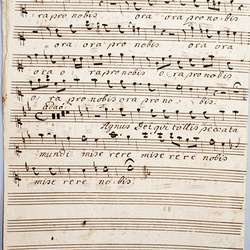 ra pro nobis ora ora pro no bis.
ora ora pro nobis ora ora
ora o ra pro nobis o ra pro nobis
o ra pro nobis ora pro no bis.
Agnus Dei qui tollis peccata
mundi mise rere mise rere nobis
mise rere no bis.